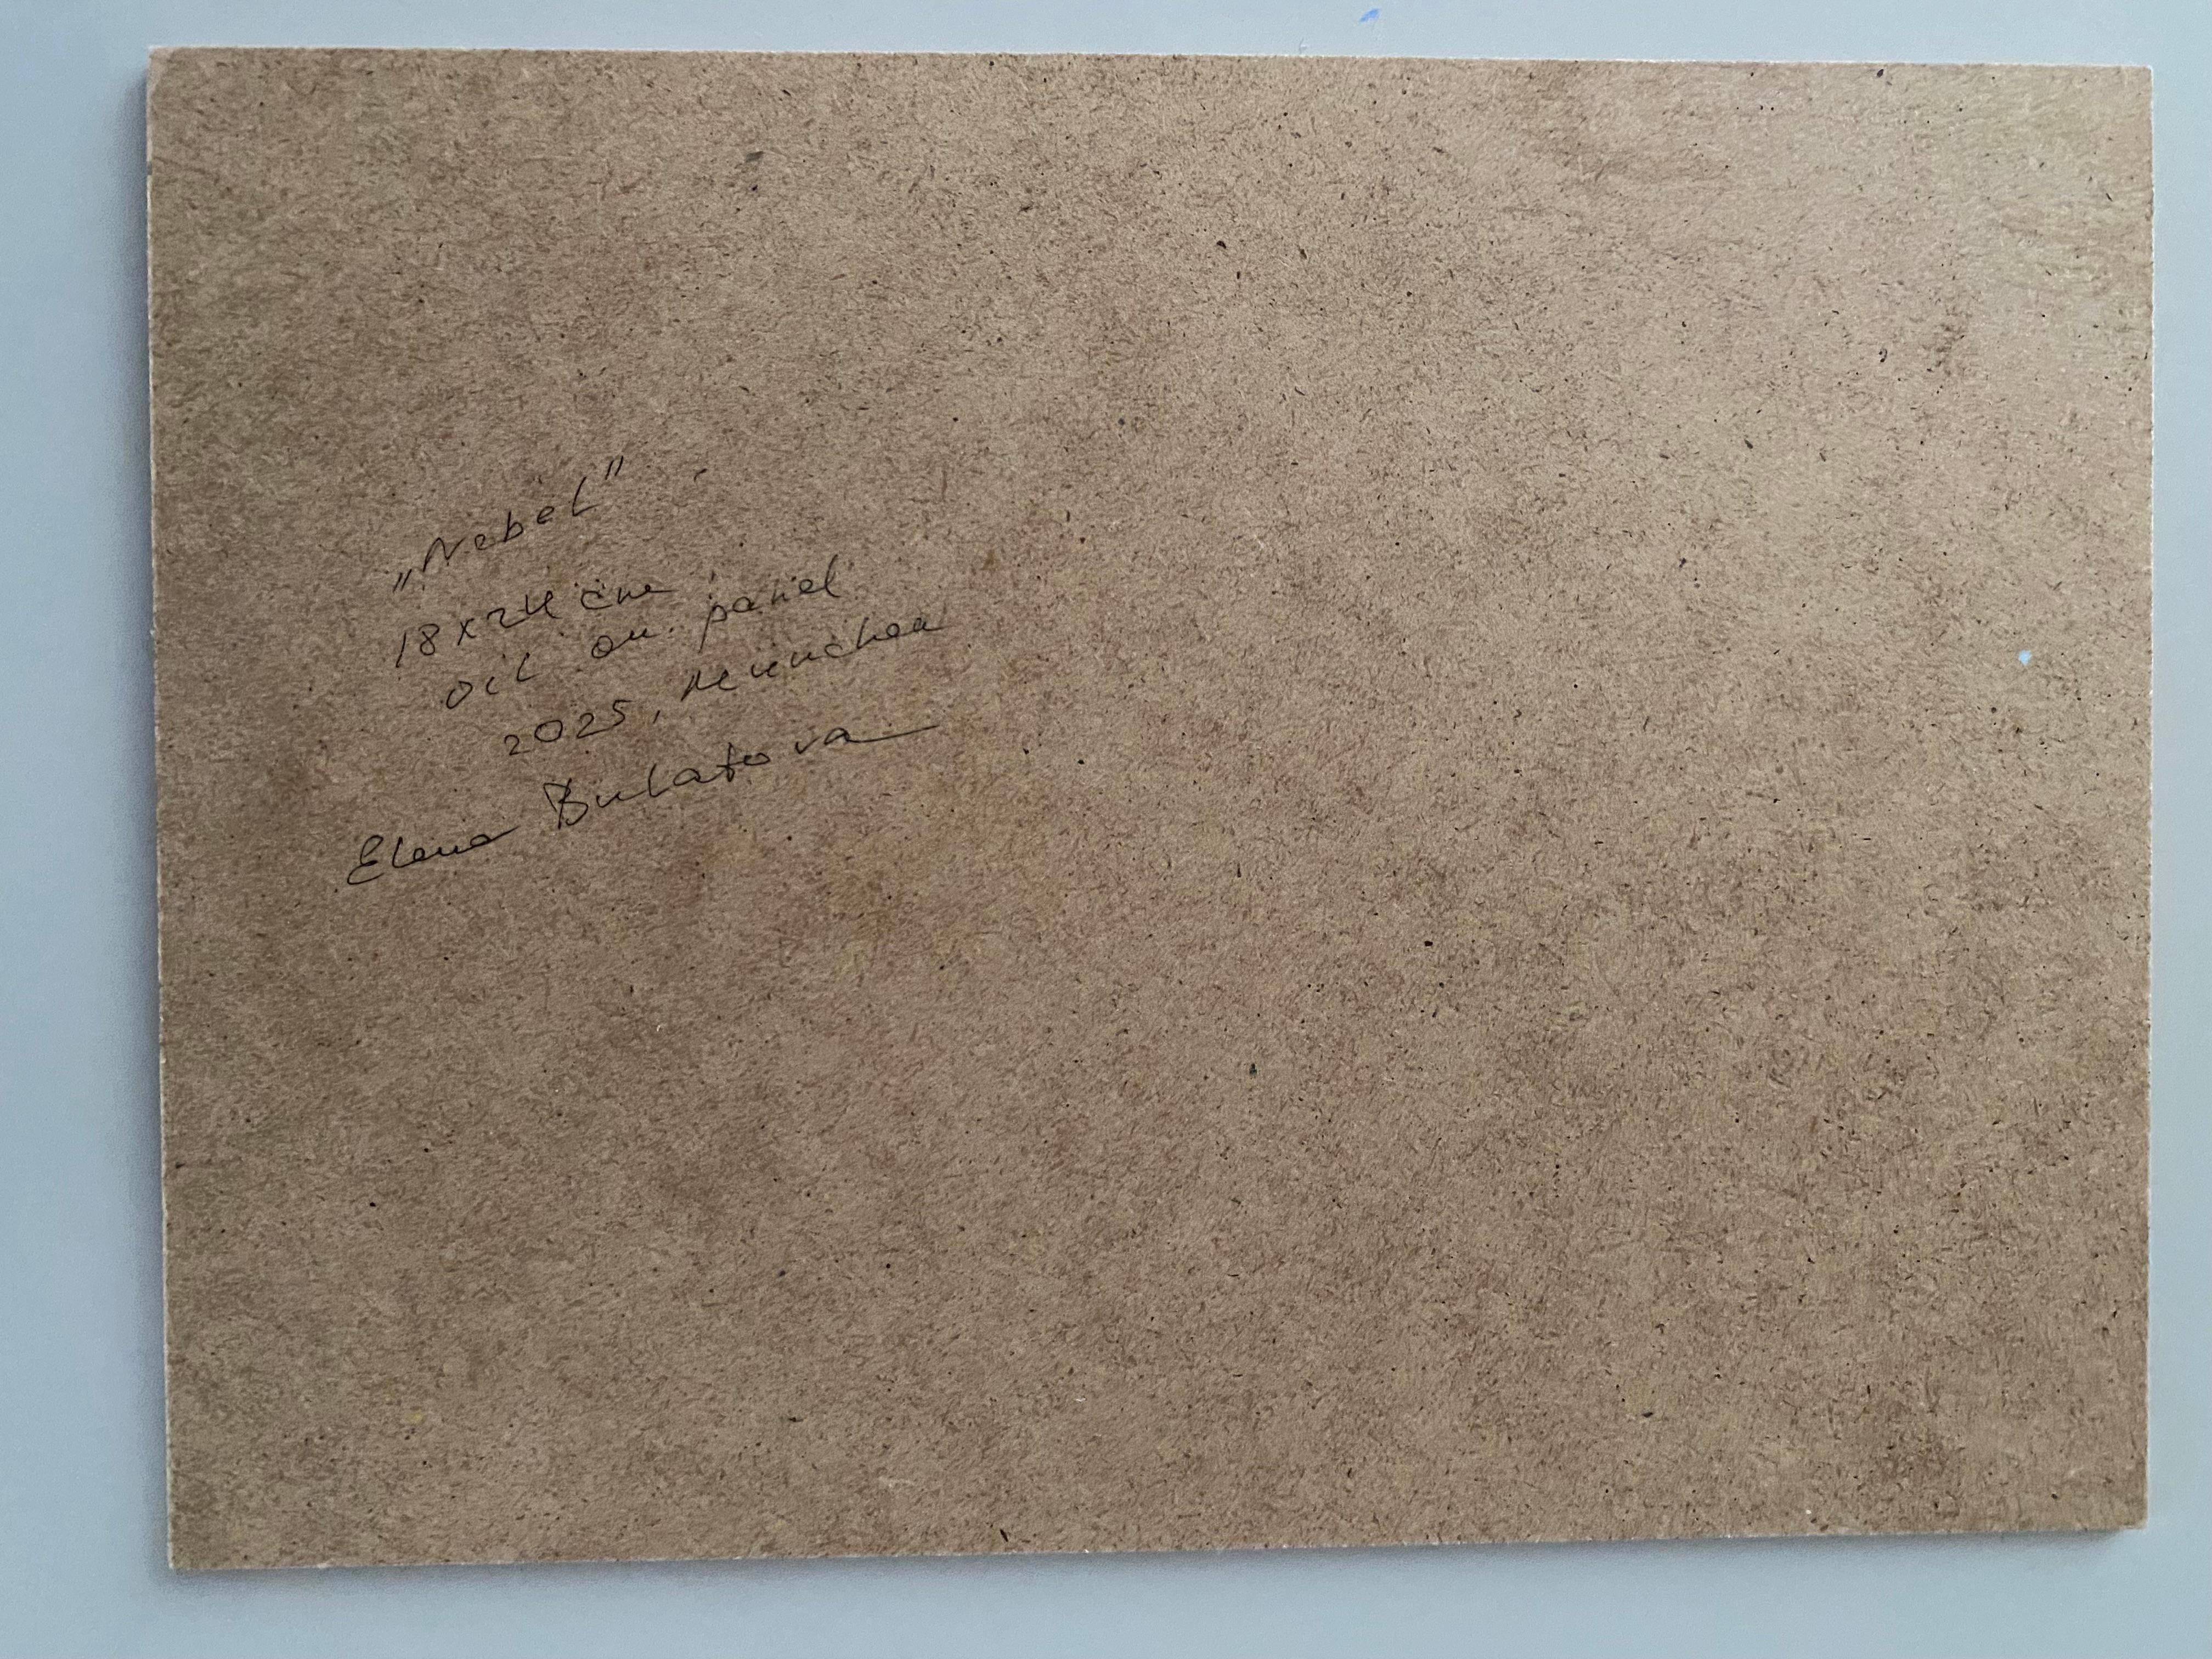 „Nebel"
18x24 cm
oil on panel
2025, Muenchen
Elena Bulatova